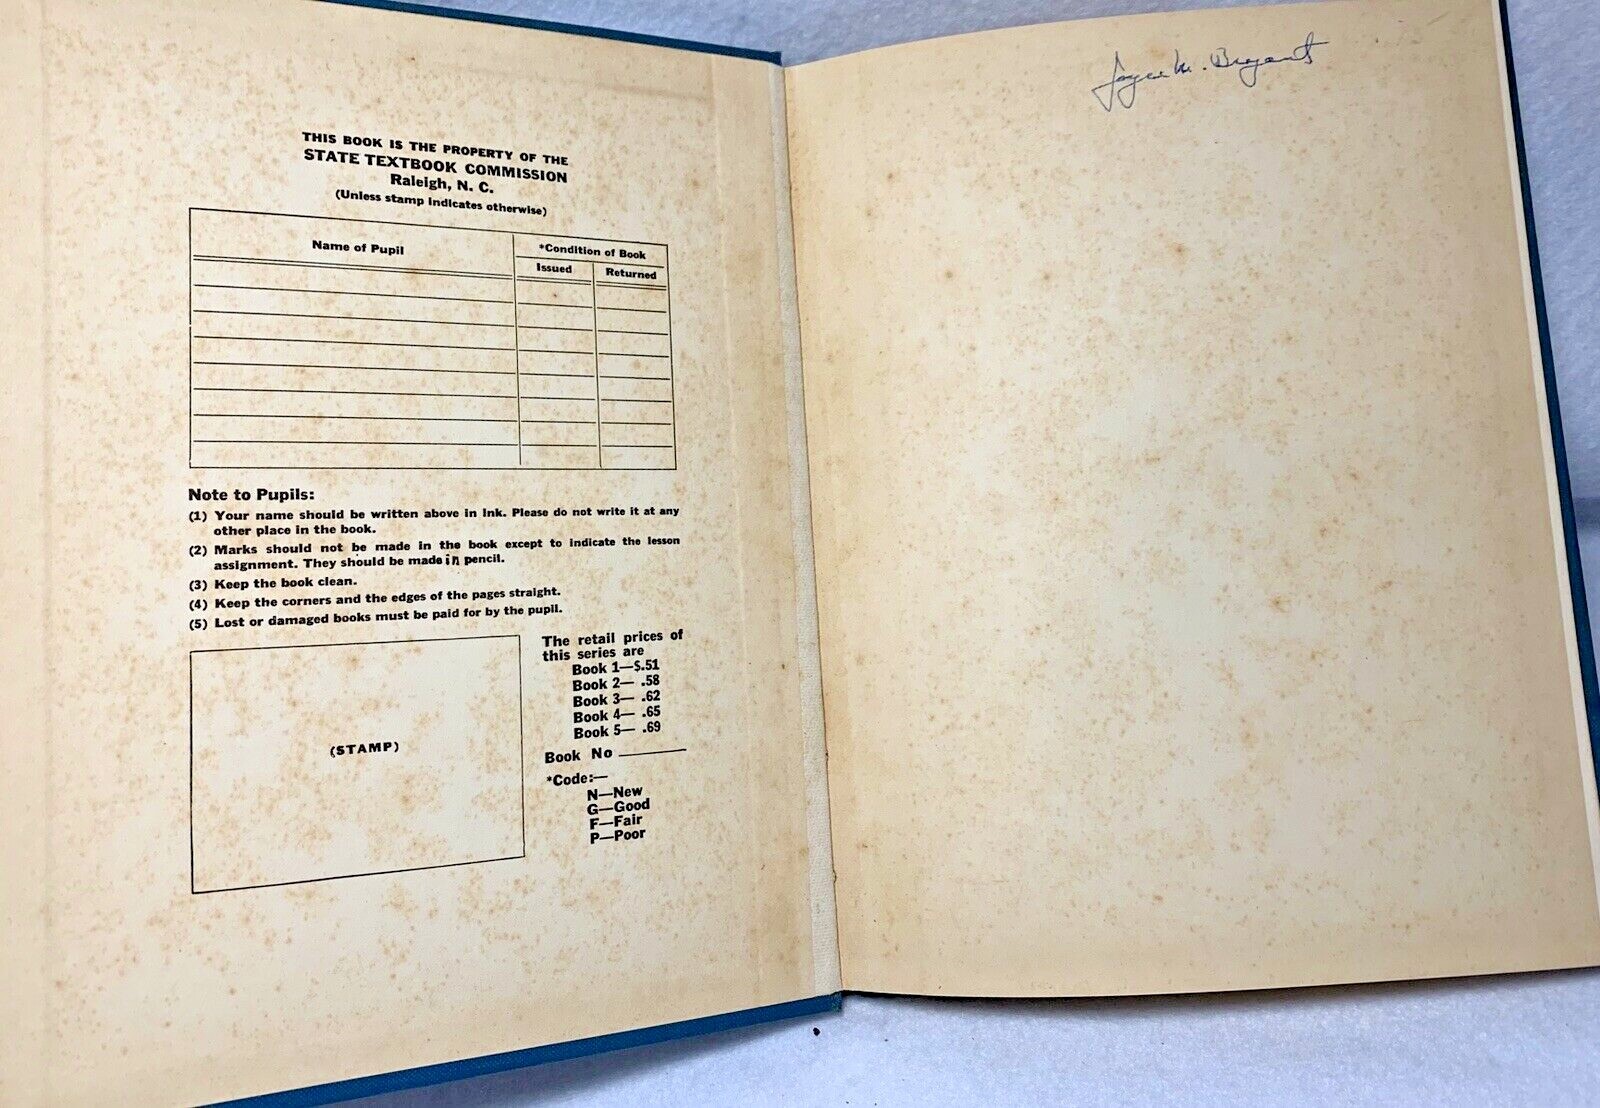 THIS BOOK IS THE PROPERTY OF THE
STATE TEXTBOOK COMMISSION
Raleigh, N. C.
(Unless stamp indicates otherwise)
Name of Pupil
*Condition of Book
Issued
Returned
Note to Pupils:
(1) Your name should be written above in Ink. Please do not write it at any
other place in the book.
(2) Marks should not be made in the book except to indicate the lesson
assignment. They should be made in pencil.
(3) Keep the book clean.
(4) Keep the corners and the edges of the pages straight.
(5) Lost or damaged books must be paid for by the pupil.
(STAMP)
The retail prices of
this series are
Book 1—$.51
Book 2— .58
Book 3— .62
Book 4— .65
Book 5— .69
Book No
*Code:—
N—New
G—Good
F—Fair
P—Poor
Joyce M. Bryant